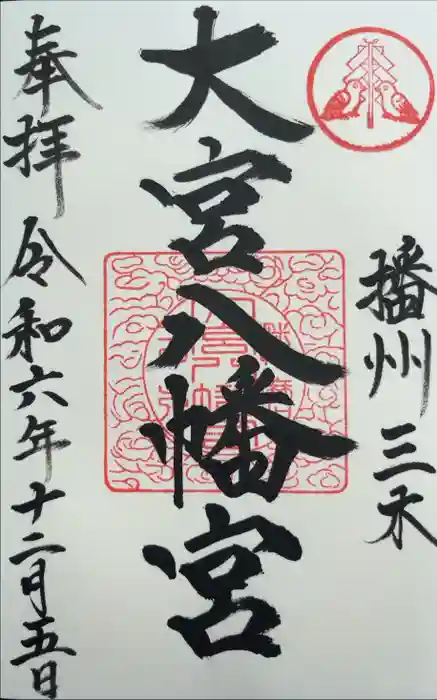 播州 三木
大宮八幡宮
奉拝 令和六年十二月五日